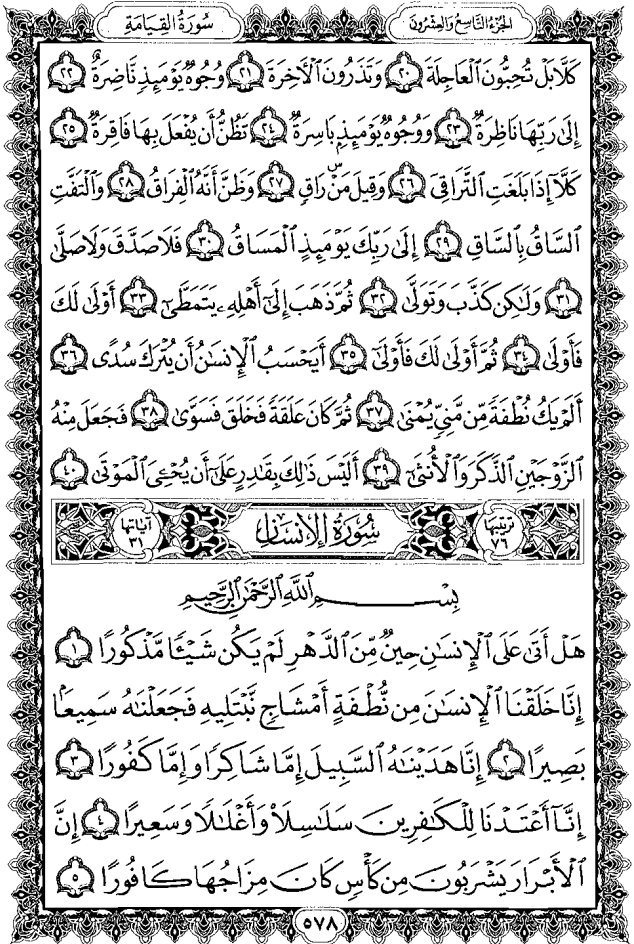 الجزء التاسع والعشرون سورة القيامة
كَلَّا بَلْ تُحِبُّونَ الْعَاجِلَةَ ٢٠ وَتَذَرُونَ الْآخِرَةَ ٢١ وُجُوهٌ يَوْمَئِذٍ نَّاضِرَةٌ ٢٢
إِلَىٰ رَبِّهَا نَاظِرَةٌ ٢٣ وَوُجُوهٌ يَوْمَئِذٍ بَاسِرَةٌ ٢٤ تَظُنُّ أَن يُفْعَلَ بِهَا فَاقِرَةٌ ٢٥
كَلَّا إِذَا بَلَغَتِ التَّرَاقِيَ ٢٦ وَقِيلَ مَنْ ۜ رَاقٍ ٢٧ وَظَنَّ أَنَّهُ الْفِرَاقُ ٢٨ وَالْتَفَّتِ
السَّاقُ بِالسَّاقِ ٢٩ إِلَىٰ رَبِّكَ يَوْمَئِذٍ الْمَسَاقُ ٣٠ فَلَا صَدَّقَ وَلَا صَلَّىٰ
٣١ وَلَٰكِن كَذَّبَ وَتَوَلَّىٰ ٣٢ ثُمَّ ذَهَبَ إِلَىٰ أَهْلِهِ يَتَمَطَّىٰ ٣٣ أَوْلَىٰ لَكَ
فَأَوْلَىٰ ٣٤ ثُمَّ أَوْلَىٰ لَكَ فَأَوْلَىٰ ٣٥ أَيَحْسَبُ الْإِنسَانُ أَن يُتْرَكَ سُدًى ٣٦
أَلَمْ يَكُ نُطْفَةً مِّن مَّنِيٍّ يُمْنَىٰ ٣٧ ثُمَّ كَانَ عَلَقَةً فَخَلَقَ فَسَوَّىٰ ٣٨ فَجَعَلَ مِنْهُ
الزَّوْجَيْنِ الذَّكَرَ وَالْأُنثَىٰ ٣٩ أَلَيْسَ ذَٰلِكَ بِقَادِرٍ عَلَىٰ أَن يُحْيِيَ الْمَوْتَىٰ ٤٠
ترتيبها ٧٦ سورة الإنسان آياتها ٣١
بِسْمِ اللَّهِ الرَّحْمَٰنِ الرَّحِيمِ
هَلْ أَتَىٰ عَلَى الْإِنسَانِ حِينٌ مِّنَ الدَّهْرِ لَمْ يَكُن شَيْئًا مَّذْكُورًا ١
إِنَّا خَلَقْنَا الْإِنسَانَ مِن نُّطْفَةٍ أَمْشَاجٍ نَّبْتَلِيهِ فَجَعَلْنَاهُ سَمِيعًا
بَصِيرًا ٢ إِنَّا هَدَيْنَاهُ السَّبِيلَ إِمَّا شَاكِرًا وَإِمَّا كَفُورًا ٣
إِنَّا أَعْتَدْنَا لِلْكَافِرِينَ سَلَاسِلَا وَأَغْلَالًا وَسَعِيرًا ٤ إِنَّ
الْأَبْرَارَ يَشْرَبُونَ مِن كَأْسٍ كَانَ مِزَاجُهَا كَافُورًا ٥
٥٧٨